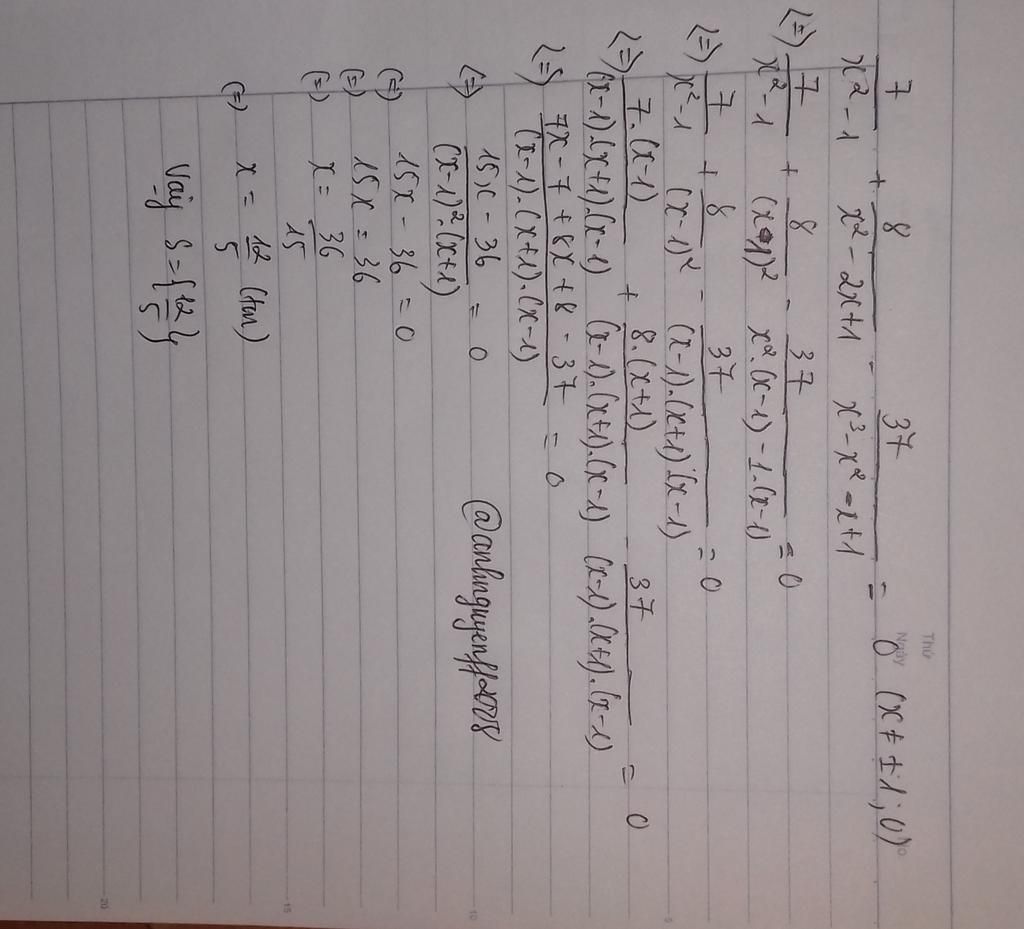 Thứ
Ngày
7/(x² - 1) + 8/(x² - 2x + 1) - 37/(x³ - x² - x + 1) = 0 (x ≠ ±1; 0)
(=) 7/(x² - 1) + 8/(x - 1)² - 37/(x².(x - 1) - 1.(x - 1)) = 0
(=) 7/(x² - 1) + 8/(x - 1)² - 37/((x - 1).(x + 1).(x - 1)) = 0
(=) 7.(x - 1)/((x - 1).(x + 1).(x - 1)) + 8.(x + 1)/((x - 1).(x + 1).(x - 1)) - 37/((x - 1).(x + 1).(x - 1)) = 0
(=) (7x - 7 + 8x + 8 - 37)/((x - 1).(x + 1).(x - 1)) = 0
(=) (15x - 36)/((x - 1)².(x + 1)) = 0
(=) 15x - 36 = 0
(=) 15x = 36
(=) x = 36/15
(=) x = 12/5 (tm)
Vậy S = {12/5}
@anhnguyenff2008
5
10
15
20